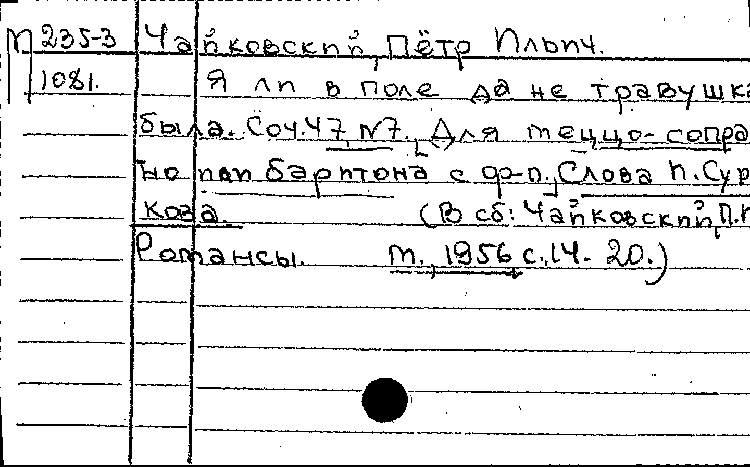 П 235-3 Чайковский, Пётр Ильич.
1081. Я ли в поле да не травушка
была. Соч.47, №7. Для меццо-сопра
но или баритона с ф-п. Слова И. Сур
кова. (В сб: Чайковский, П.И
Романсы. М., 1956 с.14-20.)